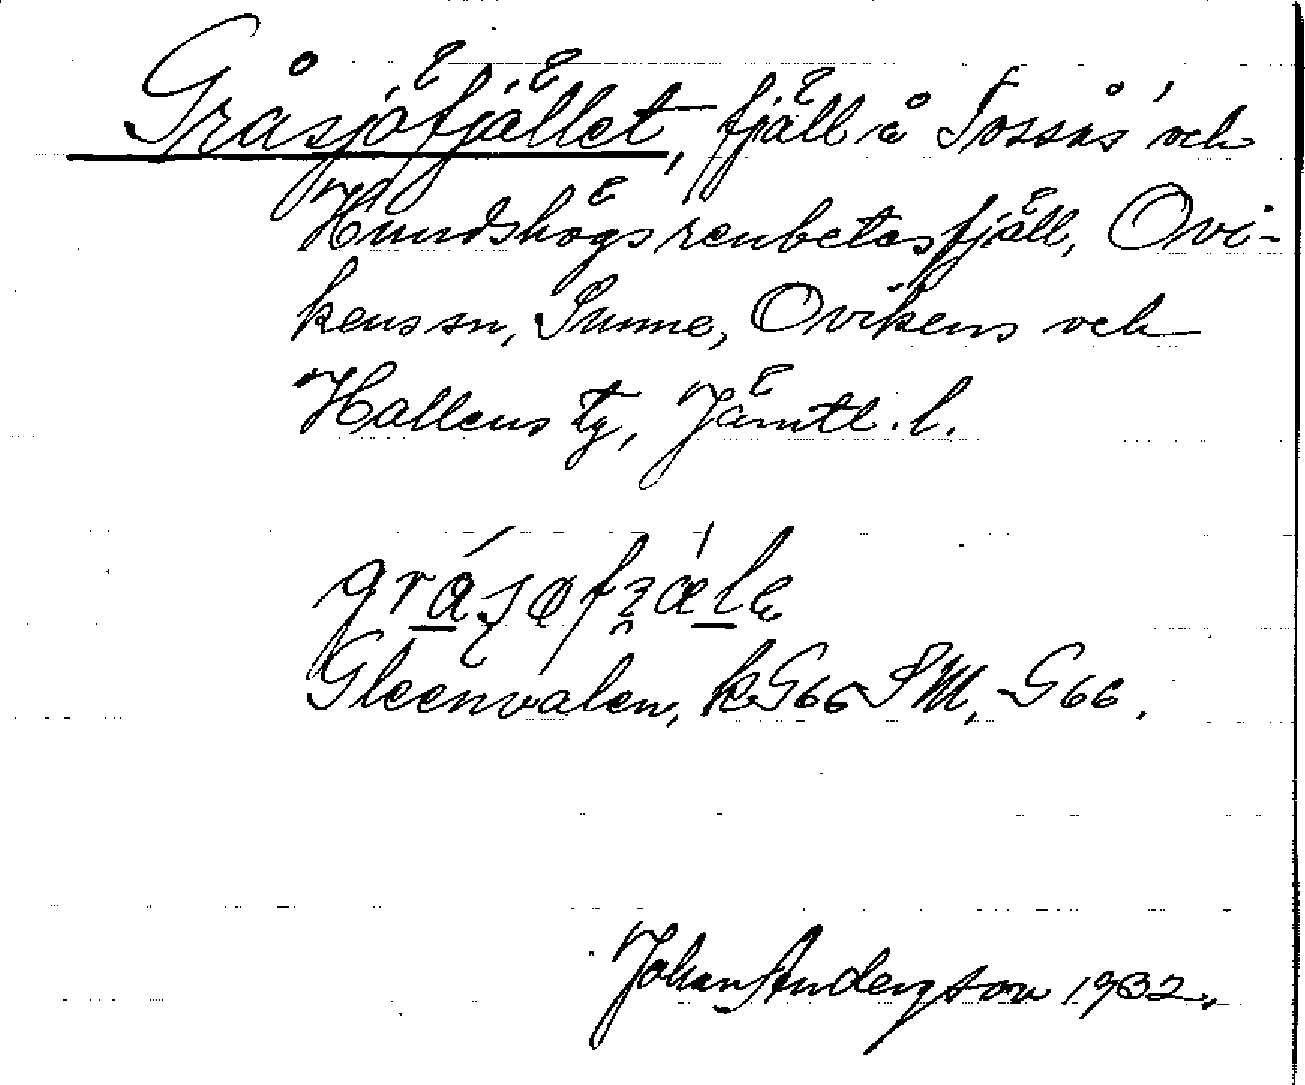 Gråsjöfjället, fjäll å Tossås och
Hundshögs renbetesfjäll, Ovi-
kens sn, Sunne, Ovikens och
Hallens tg, Jämtl. l.
Gleenvalen, kG66 SM, G66.
Johan Anderson 1932.